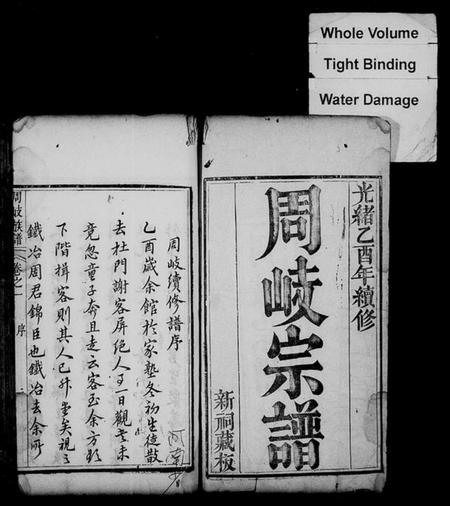 Whole Volume
Tight Binding
Water Damage
光緒乙酉年續修
周岐宗譜
新祠藏板
周岐續修譜序
乙酉歲余館於家塾冬初生徒散
去杜門謝客屏絕人事一日觀書未
竟忽童子奔且走云客至余方
下階揖客則其人已升堂矣視之
鐵冶周君錦臣也鐵冶去余所
周岐族譜
卷之一
序
河南省